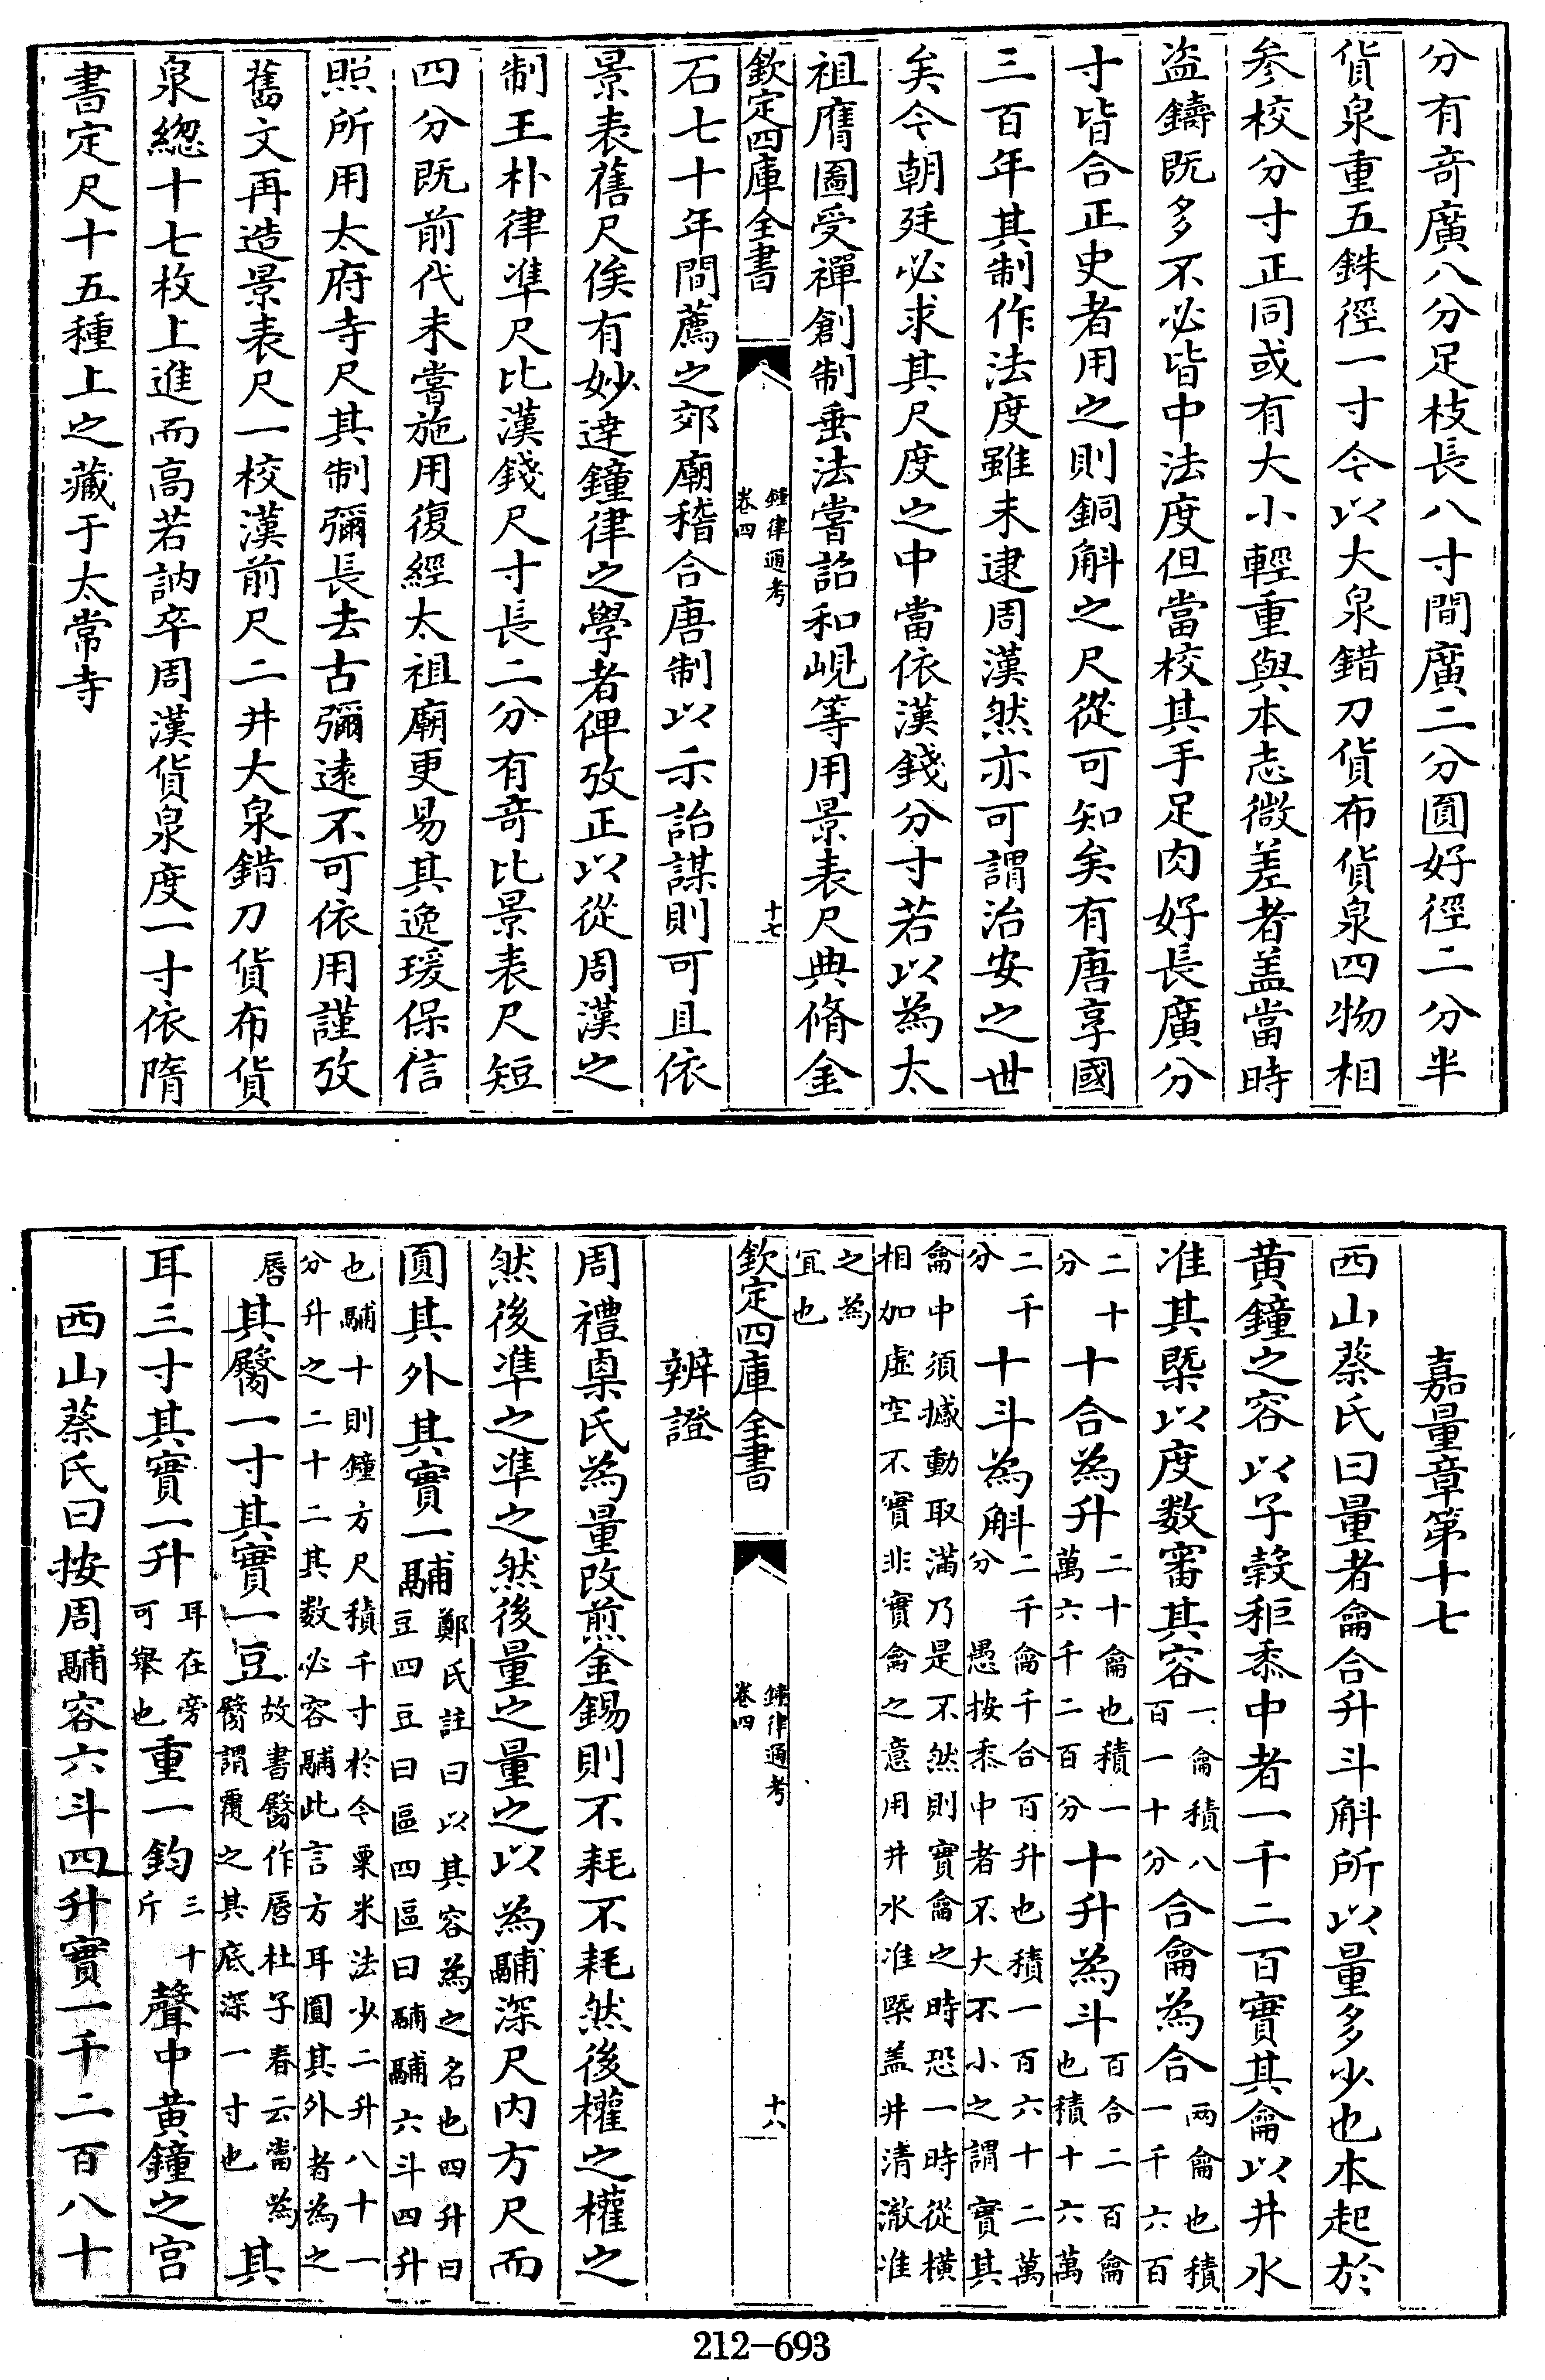 分有竒廣八分足枝長八寸間廣二分圓好徑二分半
貨泉重五銖徑一寸今以大泉錯刀貨布貨泉四物相
參校分寸正同或有大小輕重與本志微差者盖當時
盜鑄既多不必皆中法度但當校其手足肉好長廣分
寸皆合正史者用之則銅斛之尺從可知矣有唐享國
三百年其制作法度雖未逮周漢然亦可謂治安之世
矣今朝廷必求其尺度之中當依漢錢分寸若以為太
祖膺圖受禪創制垂法嘗詔和峴等用景表尺典脩金
欽定四庫全書
鍾律通考
卷四
十七
石七十年間薦之郊廟稽合唐制以示詒謀則可且依
景表舊尺俟有妙達鐘律之學者俾攷正以從周漢之
制王朴律準尺比漢錢尺寸長二分有竒比景表尺短
四分既前代未嘗施用復經太祖廟更易其逸瑗保信
照所用太府寺尺其制彌長去古彌遠不可依用謹攷
舊文再造景表尺一校漢前尺二井大泉錯刀貨布貨
泉緫十七枚上進而高若訥卒周漢貨泉度一寸依隋
書定尺十五種上之藏于太常寺
嘉量章第十七
西山蔡氏曰量者龠合升斗斛所以量多少也本起於
黃鐘之容以子榖秬黍中者一千二百實其龠以井水
准其槩以度数審其容一龠積八百一十分合龠為合兩龠也積一千六百
二十分十合為升二十龠也積一萬六千二百分十升為斗百合二百龠也積十六萬
二千分十斗為斛二千龠千合百升也積一百六十二萬分愚按黍中者不大不小之謂實其
龠中須撼動取滿乃是不然則實龠之時恐一時從橫相加虛空不實非實龠之意用井水准槩盖井清澈准
之為宜也
欽定四庫全書
鐘律通考
卷四
十八
辨證
周禮㮚氏為量改煎金錫則不耗不耗然後權之權之
然後凖之凖之然後量之量之以為鬴深尺內方尺而
圓其外其實一鬴鄭氏註曰以其容為之名也四升曰豆四豆曰區四區曰鬴鬴六斗四升
也鬴十則鐘方尺積千寸於今粟米法少二升八十一分升之二十二其数必容鬴此言方耳圓其外者為之
唇其臋一寸其實一豆故書臋作唇杜子春云當為臋謂覆之其底深一寸也其
耳三寸其實一升耳在旁可舉也重一鈞三十斤聲中黃鐘之宮
西山蔡氏曰按周鬴容六斗四升實一千二百八十
212-693